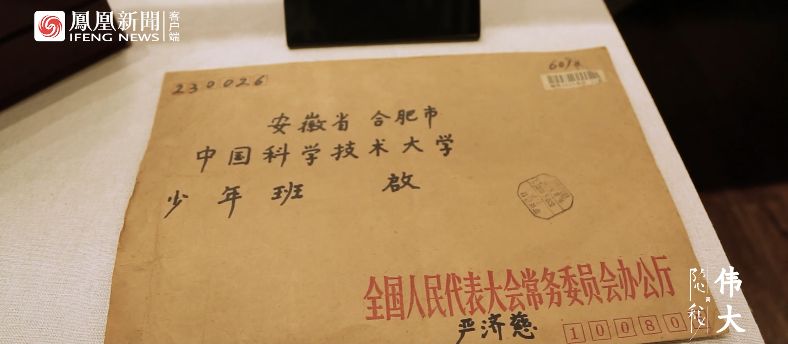 鳳凰新聞 客户端
IFENG NEWS
230026
安徽省 合肥市
中国科学技术大学
少年班 啟
全国人民代表大会常务委员会办公厅
严济慈
10080
伟大